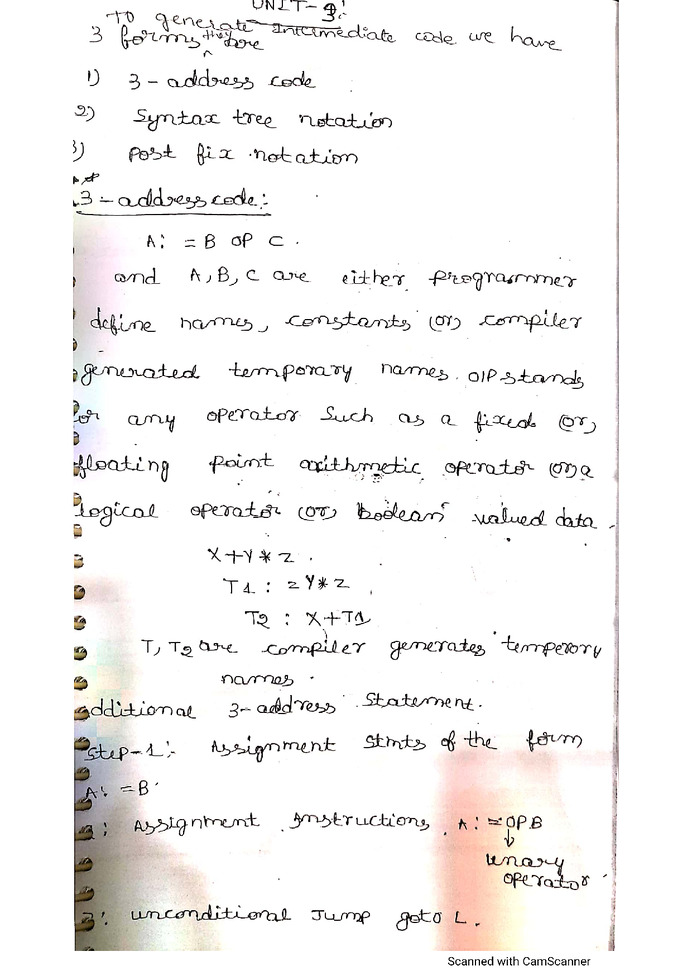 UNIT-3:
To generate Intermediate code we have
3 forms they are
1) 3-address code
2) Syntax tree notation
3) Post fix notation
3-address code:-
A: = B OP C.
and A, B, C are either programmer
define names, constants (or) compiler
generated temporary names. OIP stands
or any operator such as a fixed (or)
floating point arithmetic operator (or) a
logical operator (or) boolean valued data.
X+Y*Z.
T1 : = Y*Z
T2 : X+T1
T, T2 are compiler generates temperory
names.
dditional 3-address statement.
Step-1:- Assignment stmts of the form
A: =B
2: Assignment Instructions. A: = OP B
↓
unary
operator.
3: unconditional Jump goto L.
Scanned with CamScanner